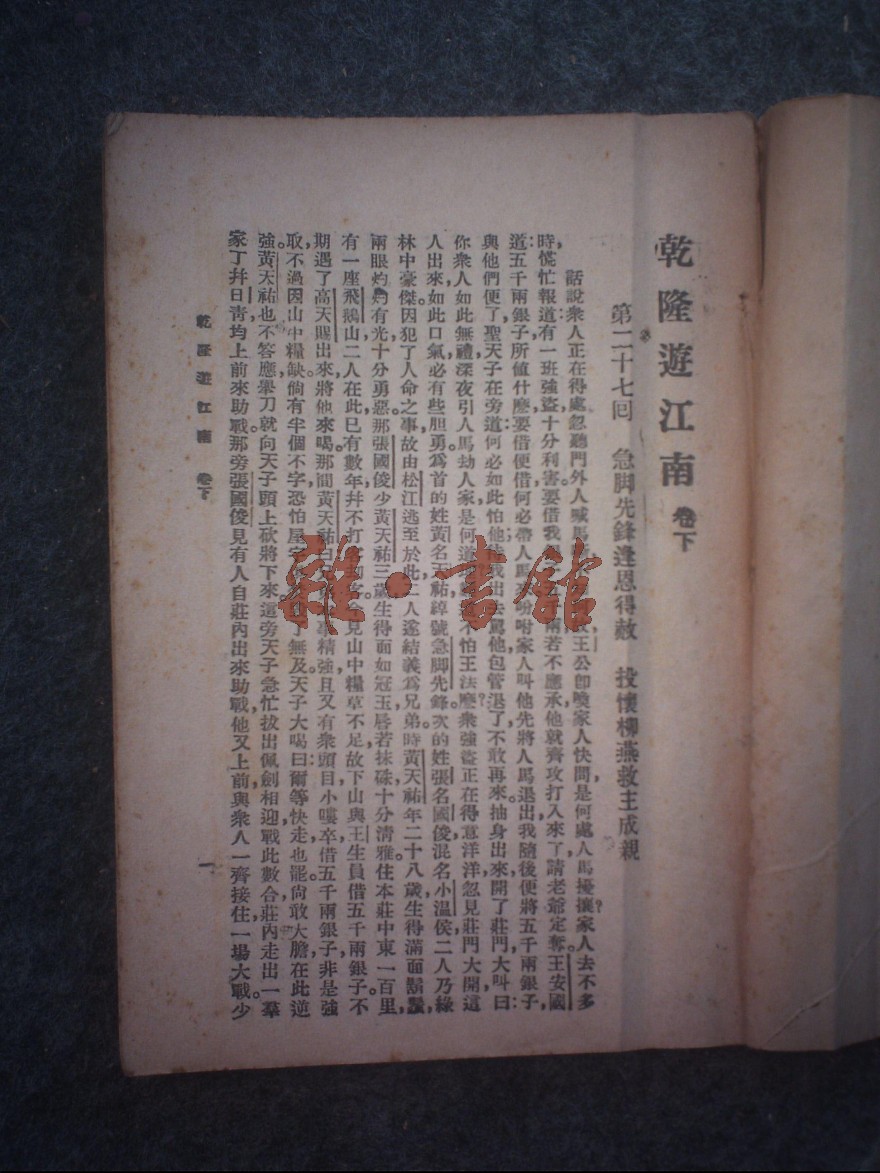 乾隆遊江南 卷下
第二十七回 急脚先鋒逢恩得赦 投懷柳燕救主成親
話說衆人正在得處忽聽門外人喊馬王公卽喚家人快問是何處人馬擾攘家人去不多
時慌忙報道有一班強盜十分利害要借我兩若不應承他就齊攻打入來了請老爺定奪王安國
道五千兩銀子所値什麼要借便借何必帶人馬吩咐家人叫他先將人馬退出我隨後便將五千兩銀子
與他們便了聖天子在旁道何必如此怕他我出去罵他包管退了不敢再來抽身出來開了莊門大叫曰
你衆人如此無禮深夜引人馬刼人家是何道不怕王法麼衆強盜正在得意洋洋忽見莊門大開這
人出來如此口氣必有些胆勇爲首的姓黃名天祐綽號急脚先鋒次的姓張名國俊混名小温侯二人乃綠
林中豪傑因犯了人命之事故由松江逃至於此二人遂結義爲兄弟時黃天祐年二十八歲生得滿面鬍鬚
兩眼灼灼有光十分勇惡那張國俊少黃天祐三歲生得面如冠玉唇若抹硃十分清雅住本莊中東一百里
有一座飛鵝山二人在此已有數年幷不打家見山中糧草不足故下山與王生員借五千兩銀子不
期遇了高天賜出來將他來喝那間黃天祐曰事精強且又有衆頭目小嘍卒借五千兩銀子非是強
取不過因山中糧缺倘有半個不字恐怕屋宇了無及天子大喝曰爾等快走也罷尙敢大膽在此逆
強黃天祐也不答應舉刀就向天子頭上砍將下來這旁天子急忙拔出佩劍相迎戰此數合莊內走出一羣
家丁幷日靑均上前來助戰那旁張國俊見有人自莊內出來助戰他又上前與衆人一齊接住一場大戰少
乾隆遊江南 卷下
一
雜·書館